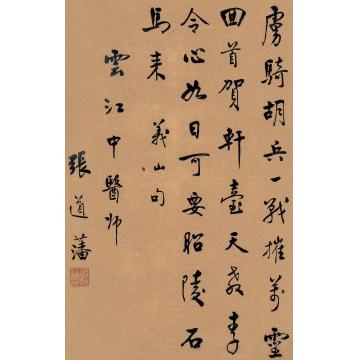 虜騎胡兵一戰摧萬靈
回首賀軒臺天教李
令心如日可要昭陵石
馬来 義山句
雲江中醫師
張道藩